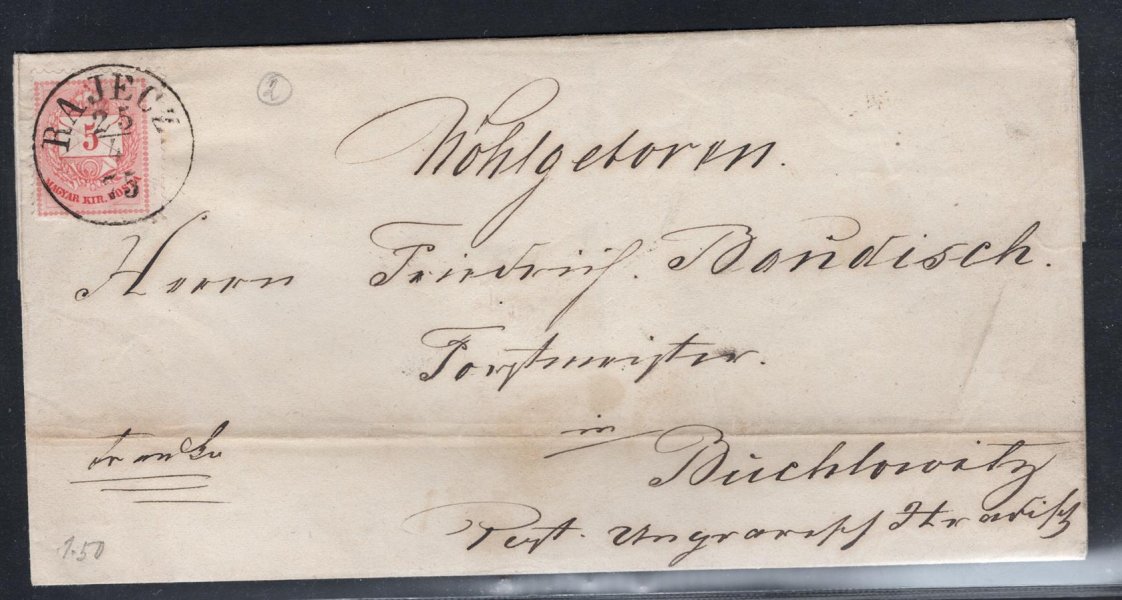 RAJECZ
25
4
75
5
MAGYAR KIR. POSTA
2
Wohlgeboren.
Herrn Friedrich. Baudisch.
Forstmeister.
franko
in
Buchlowitz
Post. Ungrarisch Hradisch
1.50